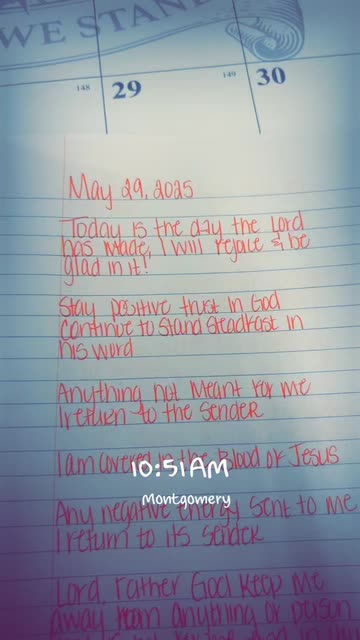 WE STAN
148 29
149 30
May 29, 2025
Today is the day the Lord
has made, I will rejoice & be
glad in it!
Stay positive trust in God
continue to stand steadfast in
his word
Anything not meant for me
I return to the sender
I am covered in the Blood of Jesus
10:51AM
Montgomery
Any negative energy sent to me
I return to its sender
Lord, Father God keep me
away from anything or person